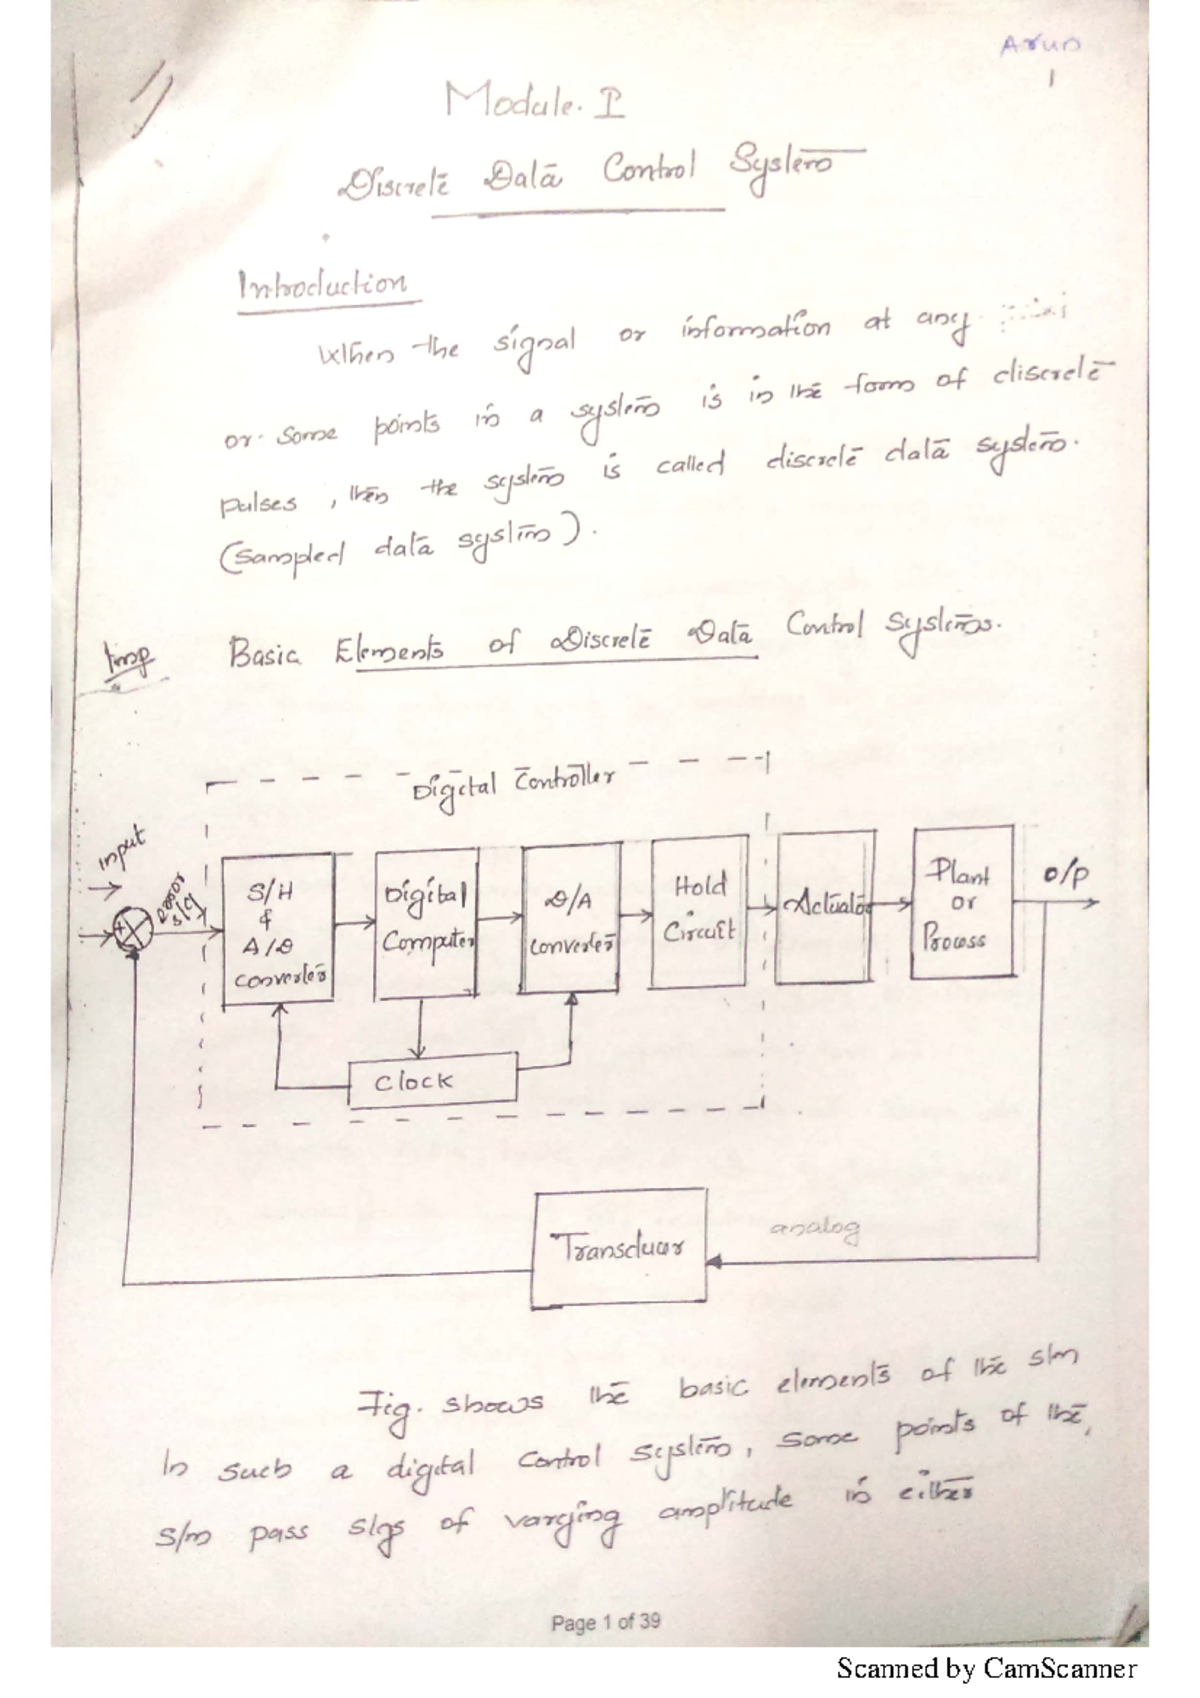 Arun
1
Module. I
Discrete Data Control System
Introduction
When the signal or information at any
or some points in a system is in the form of discrete
pulses, then the system is called discrete data system.
(Sampled data system).
Imp
Basic Elements of Discrete Data Control Systems.
Digital Controller
input
error
slg
S/H
&
A/D
converter
Digital
Computer
D/A
converter
Hold
Circuit
Actuator
Plant
or
Process
O/P
Clock
Transducer
analog
Fig. shows the basic elements of the s/m
In such a digital control system, some points of the
s/m pass slgs of varying amplitude in either
Page 1 of 39
Scanned by CamScanner